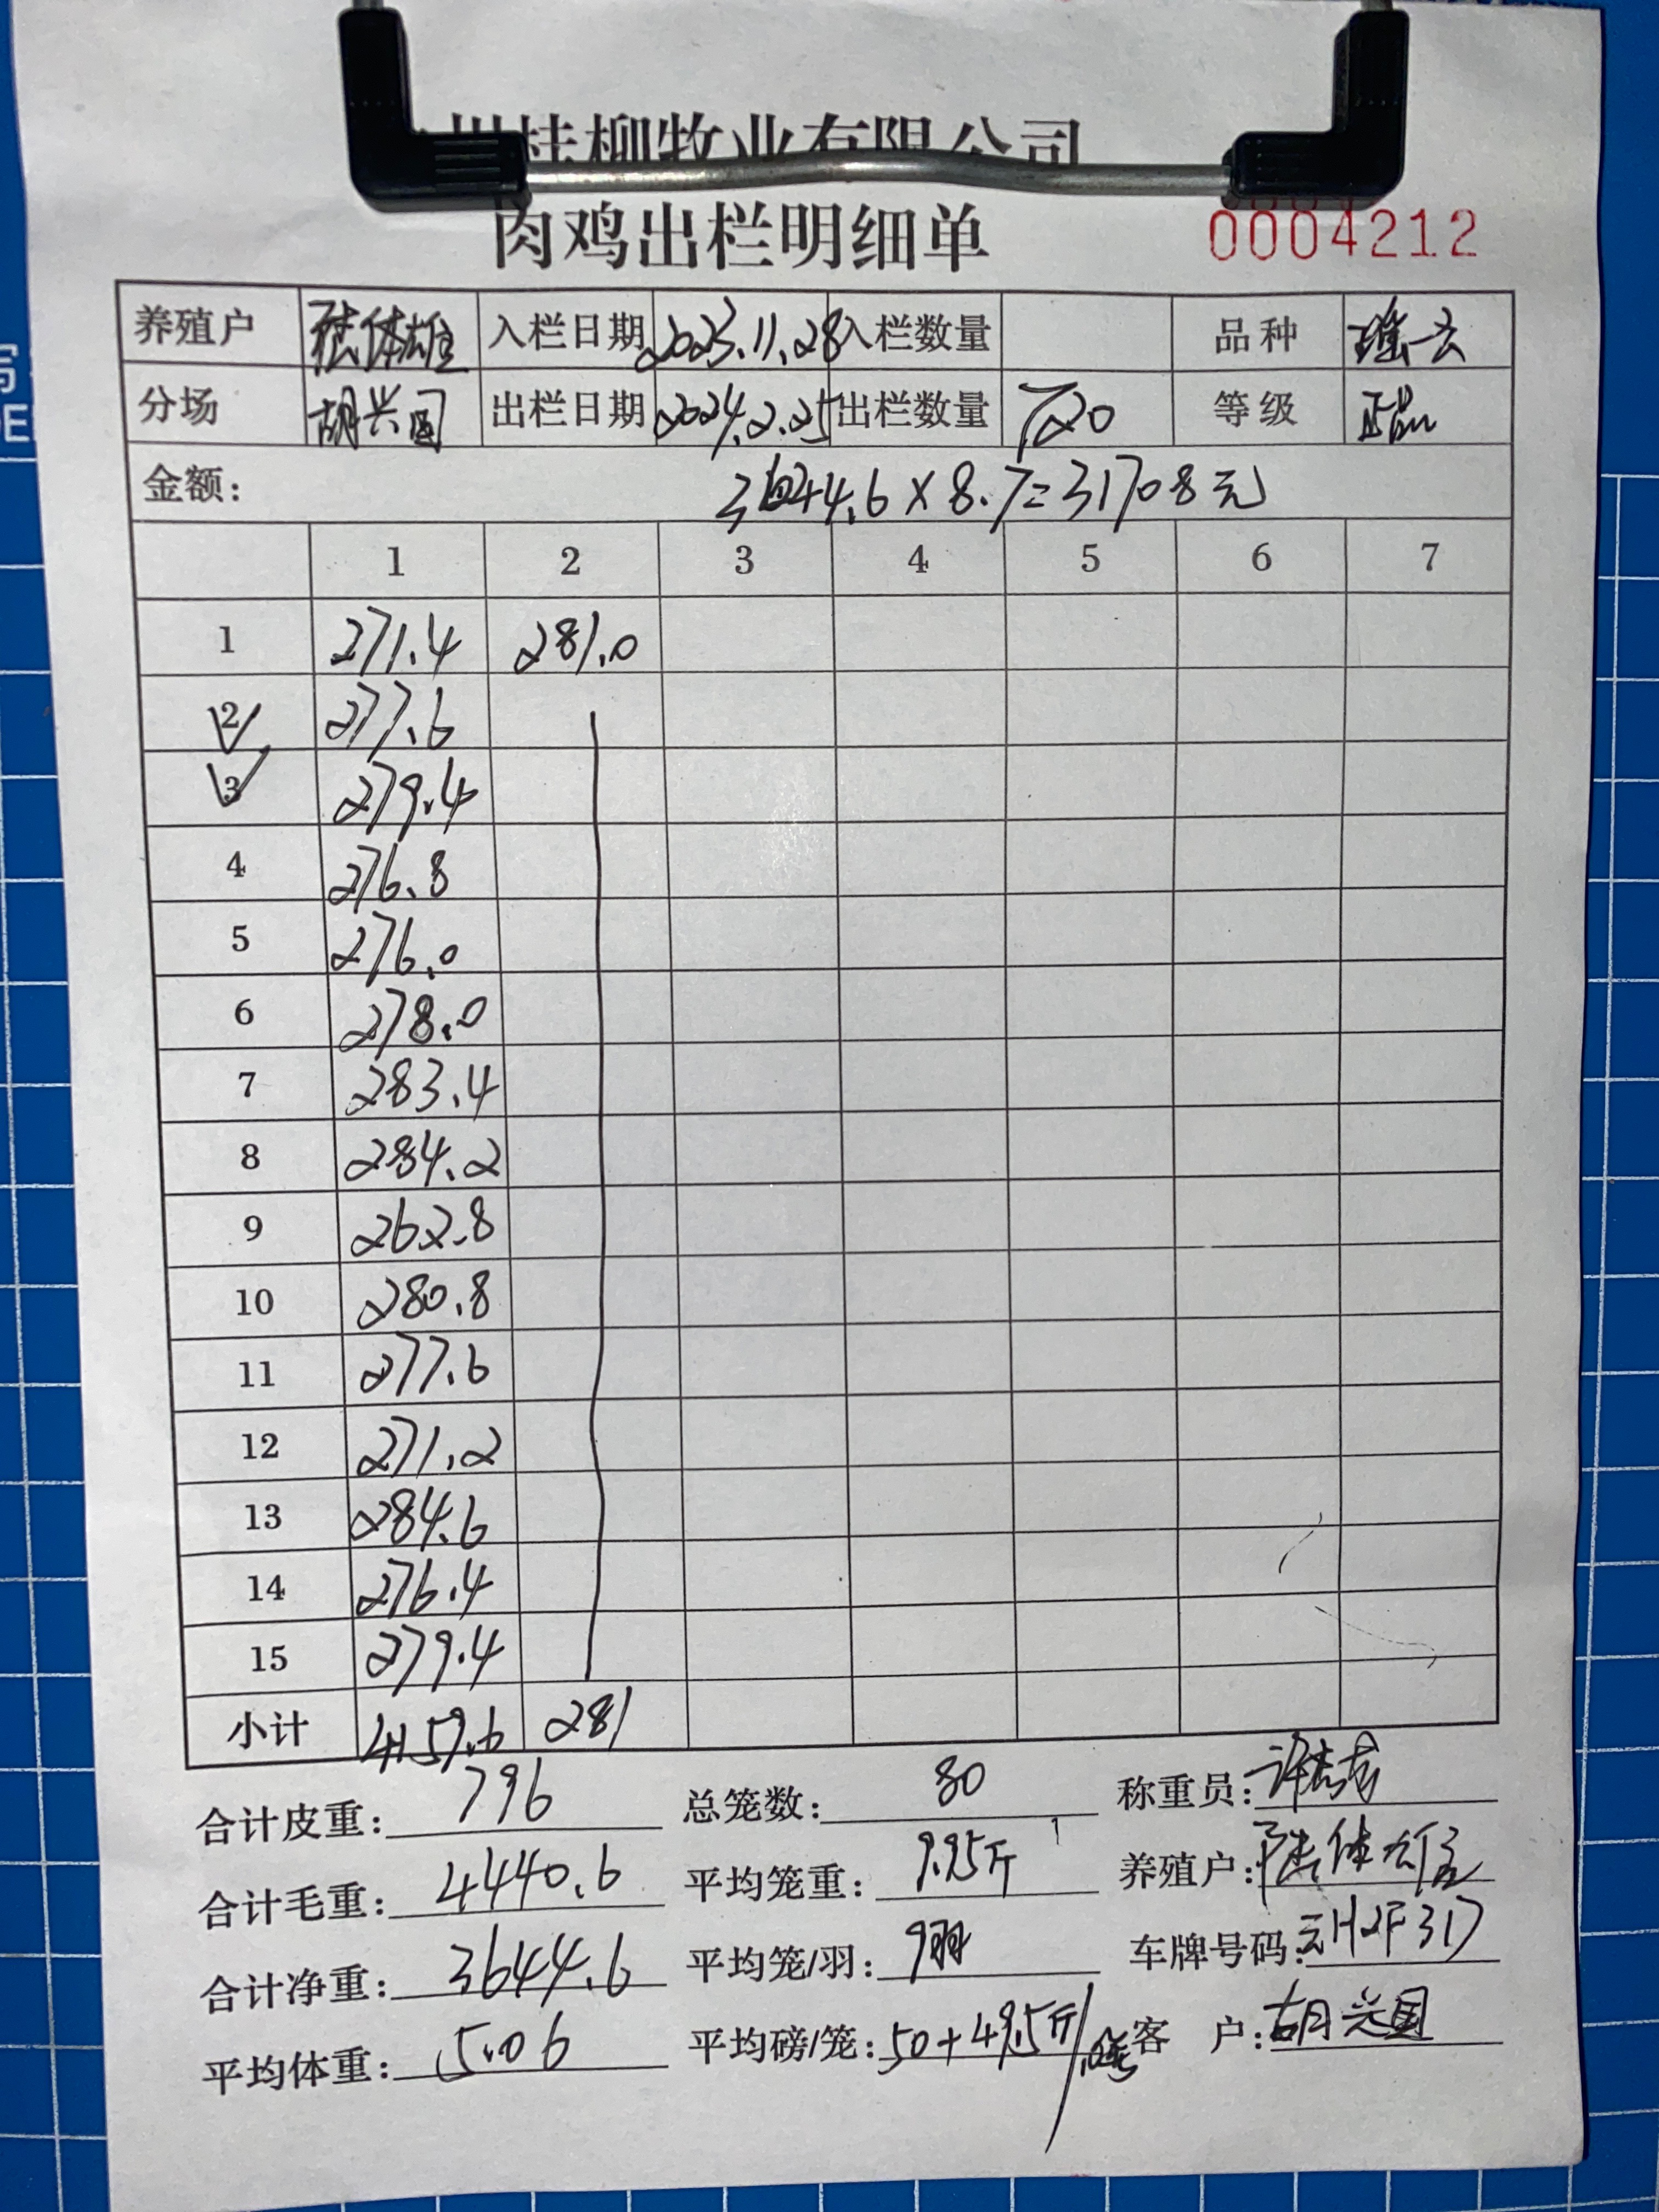 州桂柳牧业有限公司
肉鸡出栏明细单 0004212
养殖户 陆体雄 入栏日期 2023.11.28 入栏数量 品种 瑶一云
分场 胡兴国 出栏日期 2024.2.25 出栏数量 720 等级 正品
金额: 3644.6×8.7=31708元
1 2 3 4 5 6 7
1 271.4 281.0
2 277.6
3 279.4
4 276.8
5 276.0
6 278.0
7 283.4
8 284.2
9 262.8
10 280.8
11 277.6
12 271.2
13 284.6
14 276.4
15 279.4
小计 4159.6 281
合计皮重: 796 总笼数: 80 称重员:
合计毛重: 4440.6 平均笼重: 9.95斤 养殖户: 陆体雄
合计净重: 3644.6 平均笼/羽: 9羽 车牌号码: 云H2F317
平均体重: 5.06 平均磅/笼: 50+49.5斤/ 客 户: 胡兴国